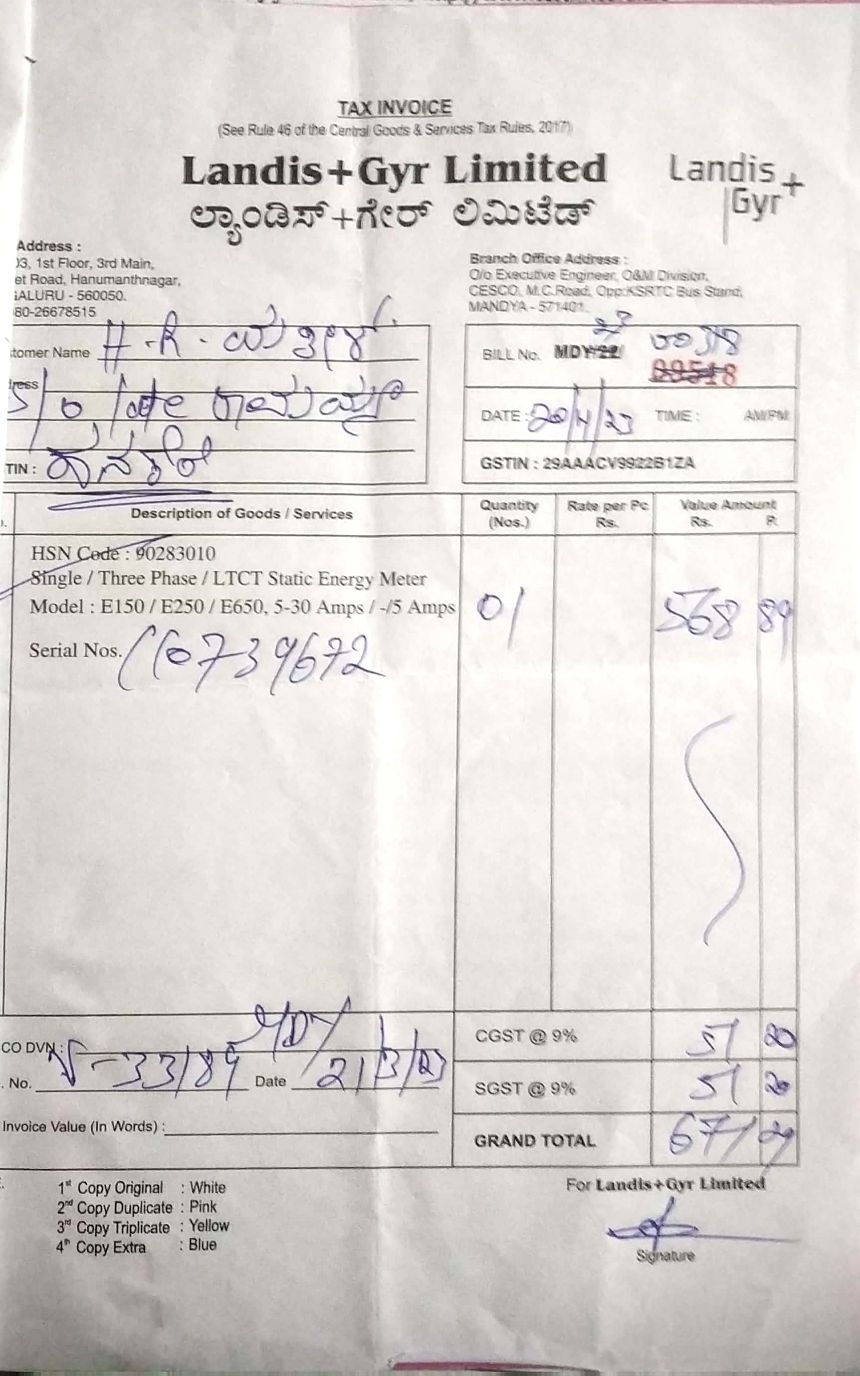 TAX INVOICE
(See Rule 46 of the Central Goods & Services Tax Rules, 2017)
Landis+Gyr Limited
Landis+
Gyr
ಲ್ಯಾಂಡಿಸ್+ಗೇರ್ ಲಿಮಿಟೆಡ್
Address :
03, 1st Floor, 3rd Main,
et Road, Hanumanthnagar,
GALURU - 560050.
80-26678515
Branch Office Address :
O/o Executive Engineer, O&M Division,
CESCO, M.C.Road, Opp:KSRTC Bus Stand,
MANDYA - 571401.
tomer Name H.R.
BILL No. MDY/22/ 23 00518
dress S/o late
DATE : 20/4/23 TIME : AM/PM
TIN :
GSTIN : 29AAACV9922B1ZA
Description of Goods / Services
Quantity (Nos.)
Rate per Pc Rs.
Value Amount Rs. P.
HSN Code : 90283010
Single / Three Phase / LTCT Static Energy Meter
Model : E150 / E250 / E650, 5-30 Amps / -/5 Amps 01 568 89
Serial Nos.
CO DVN : MDY
CGST @ 9% 51 20
. No. 33/89 Date 21/3/23
SGST @ 9% 51 20
Invoice Value (In Words) :
GRAND TOTAL 671 29
1st Copy Original : White
2nd Copy Duplicate : Pink
3rd Copy Triplicate : Yellow
4th Copy Extra : Blue
For Landis+Gyr Limited
Signature